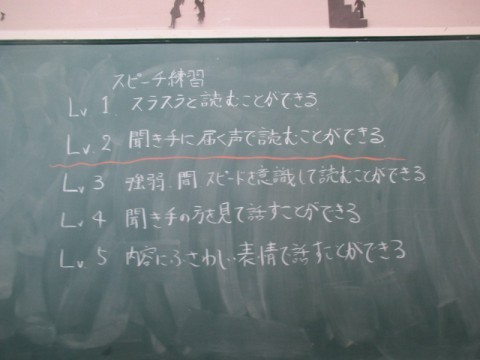 スピーチ練習
Lv. 1 スラスラと読むことができる
Lv. 2 聞き手に届く声で読むことができる.
Lv 3 強弱、間 スピードを意識して読むことができる
Lv. 4 聞き手の方を見て話すことができる
Lv. 5 内容にふさわしい表情で話すことができる